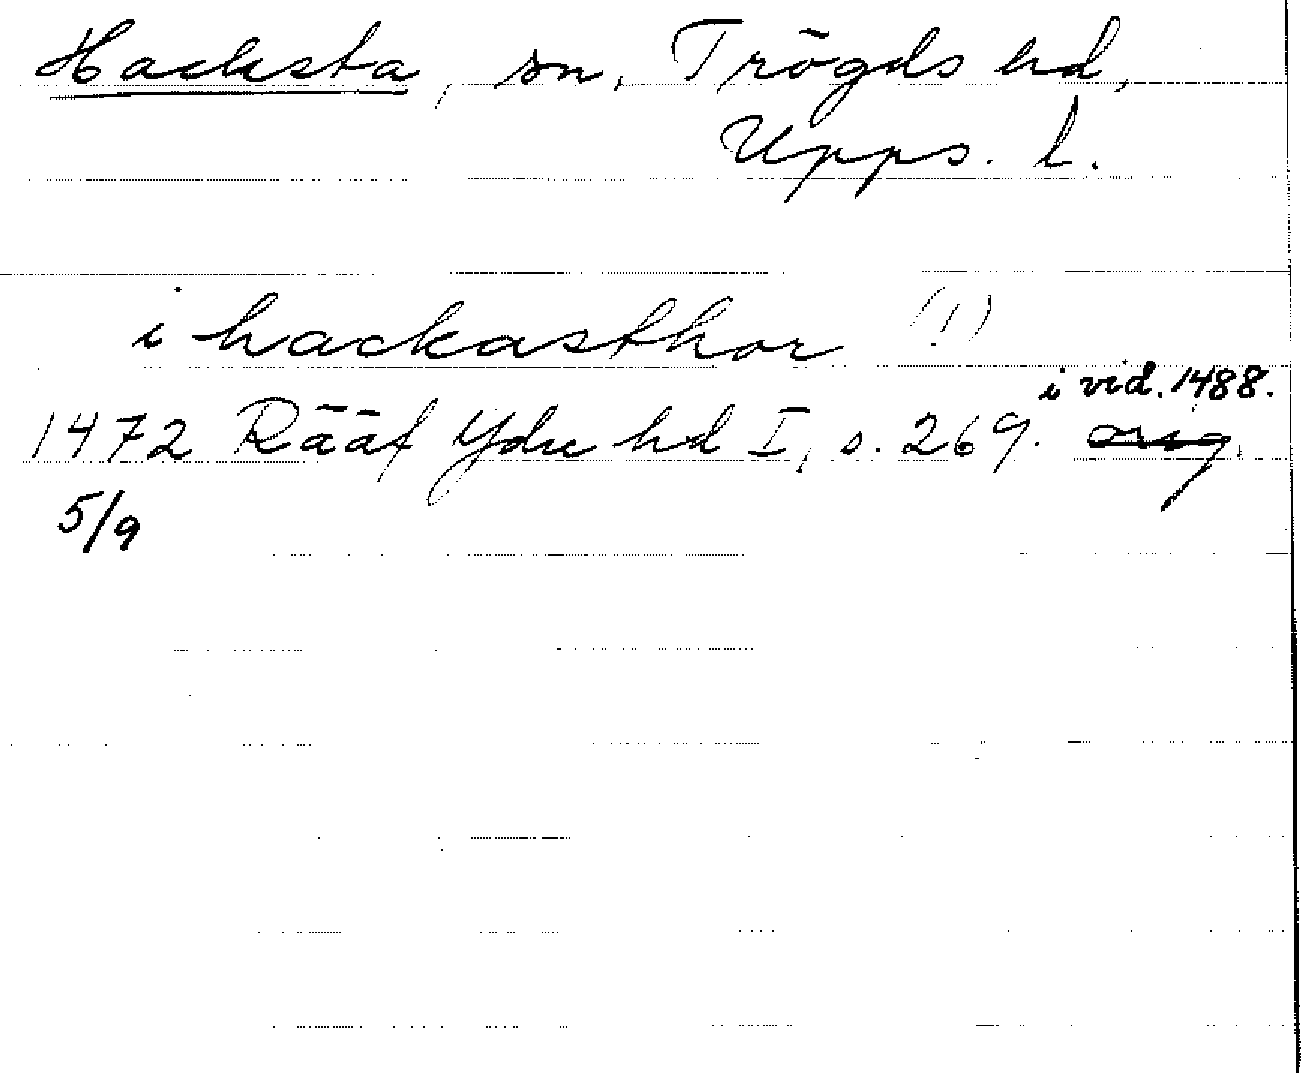 Hacksta, sn, Trögds hd,
Upps. l.
i hackasthor (!)
i vid. 1488.
1472 Rääf Ydre hd I, s. 269. orig.
5/9